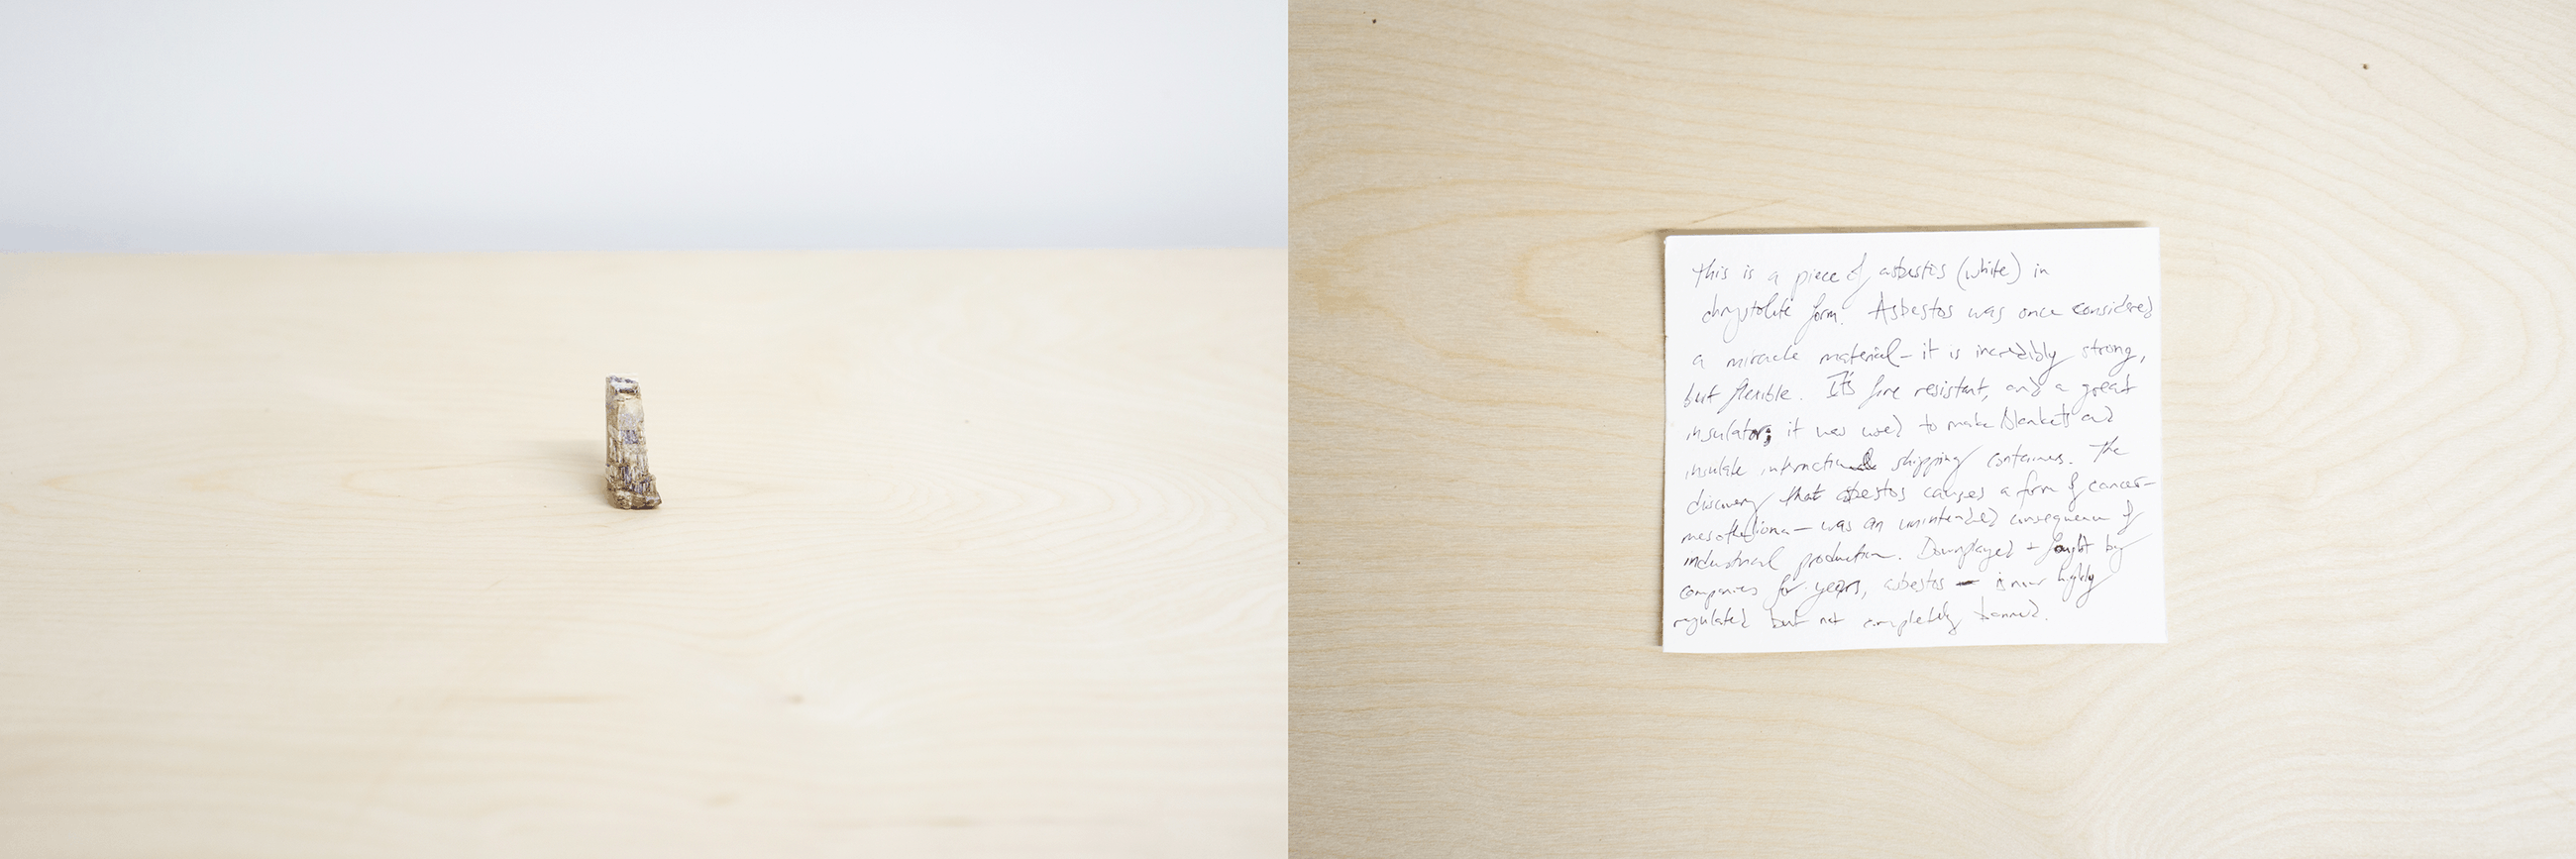 This is a piece of asbestos (white) in
chrystolite form. Asbestos was once considered
a miracle material – it is incredibly strong,
but flexible. It's fire resistant, and a great
insulator; it was used to make blankets and
insulate shipping containers. The
discovery that asbestos causes a form of cancer –
– was an unintended consequence of
industrial production. Downplayed + fought by
companies for years, asbestos is now highly
regulated but not completely banned.